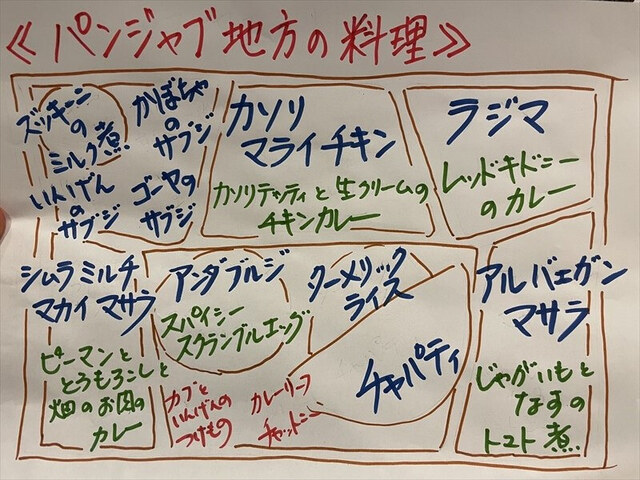 ≪パンジャブ地方の料理≫
ズッキーニ
の
ミルク煮
かぼちゃ
の
サブジ
いんげん
の
サブジ
ゴーヤの
サブジ
カソリ
マライチキン
カソリテッティと生クリームの
チキンカレー
ラジマ
レッドキドニー
のカレー
シムラミルチ
マカイマサラ
ピーマンと
とうもろこしと
畑のお肉の
カレー
アンダブルジ
スパイシー
スクランブルエッグ
ターメリック
ライス
チャパティ
カブと
いんげんの
つけもの
カレーリーフ
チャットニー
アルバェガン
マサラ
じゃがいもと
なすの
トマト煮